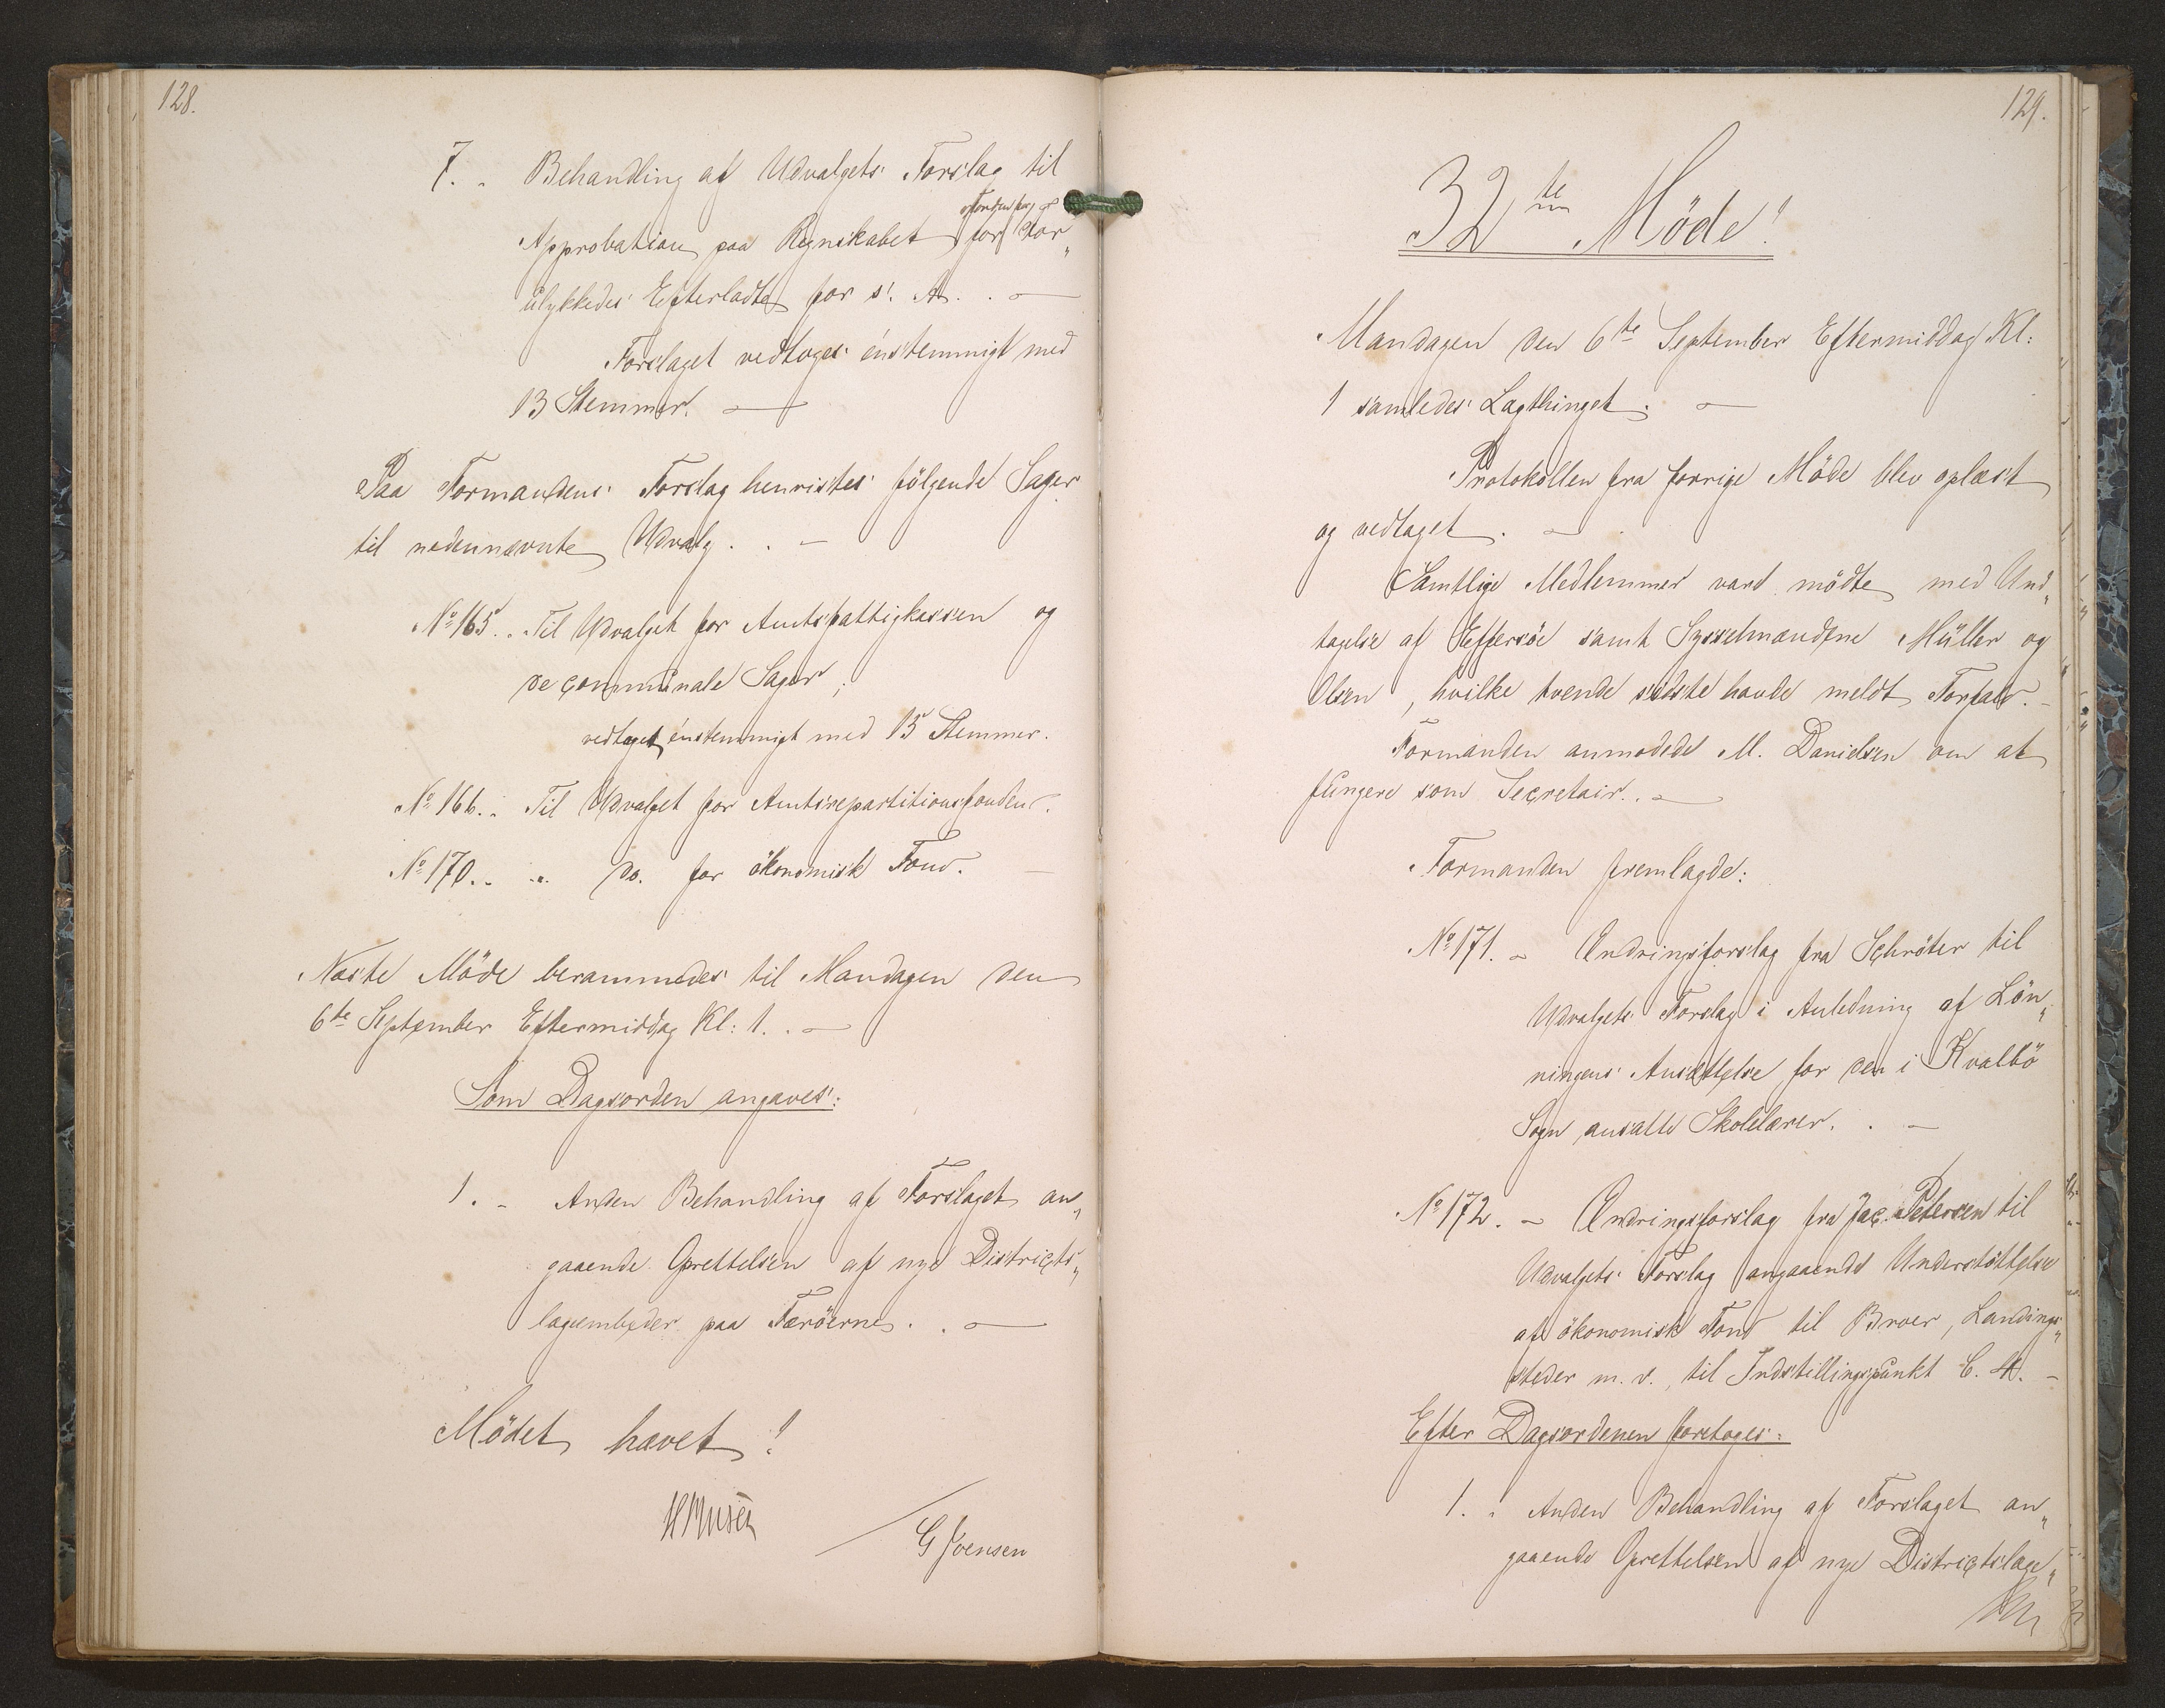 128.
7. Behandling af Udvalgets Forslag til
Approbation paa Regnskabet for Fonden for For„
ulykkedes Efterladte for s. A.
Forslaget vedtoges énstemmigt med
13 Stemmer.
Paa Formandens Forslag henvistes følgende Sager
til nedennævnte Udvalg.
No 165. Til Udvalget for Amtsfattigkassen og
de communale Sager;
vedtaget énstemmigt med 15 Stemmer.
No 166. Til Udvalget for Amtsrepartitionsfonden.
No 170. " do. for ökonomisk Fond.
Næste Möde berammedes til Mandagen den
6te September Eftermiddag Kl: 1.
Som Dagsorden angaves:
1. Anden Behandling af Forslaget an„
gaaende Oprettelsen af nye Districts„
lægeembeder paa Færöerne.
Mödet hævet!
G Joensen
129.
32te Möde!
Mandagen den 6te September Eftermiddag Kl:
1 samledes Lagthinget.
Protokollen fra forrige Möde blev oplæst
og vedtaget.
Samtlige Medlemmer vare mödte med Und„
tagelse af Effersöe samt Sysselmændene Müller og
Olsen, hvilke tvende sidste havde meldt Forfald.
Formanden anmodede M. Danielsen om at
fungere som Secretair.
Formanden fremlagde:
No 171. Ændringsforslag fra Schröter til
Udvalgets Forslag i Anledning af Lön„
ningens Ansættelse for den i Kvalbö
Sogn ansatte Skolelærer.
No 172. Ændringsforslag fra Jac. Petersen til
Udvalgets Forslag angaaende Understöttelse
af ökonomisk Fond til Broer, Landings„
steder m. v., til Indstillingspunkt C. 4.
Efter Dagsordenen foretoges:
1. Anden Behandling af Forslaget an„
gaaende Oprettelsen af nye Districtslæge„